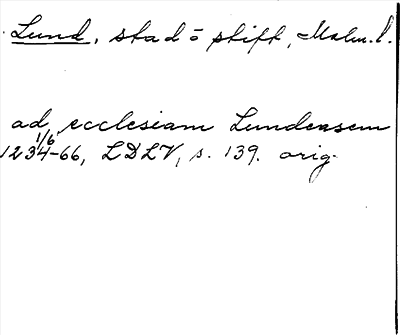 Lund, stad o stift, Malm. l.
ad ecclesiam Lundensem
1/6
1234-66, LDLV, s. 139. orig.